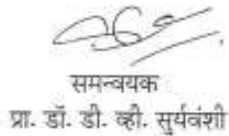 समन्वयक
प्रा. डॉ. डी. व्ही. सुर्यवंशी